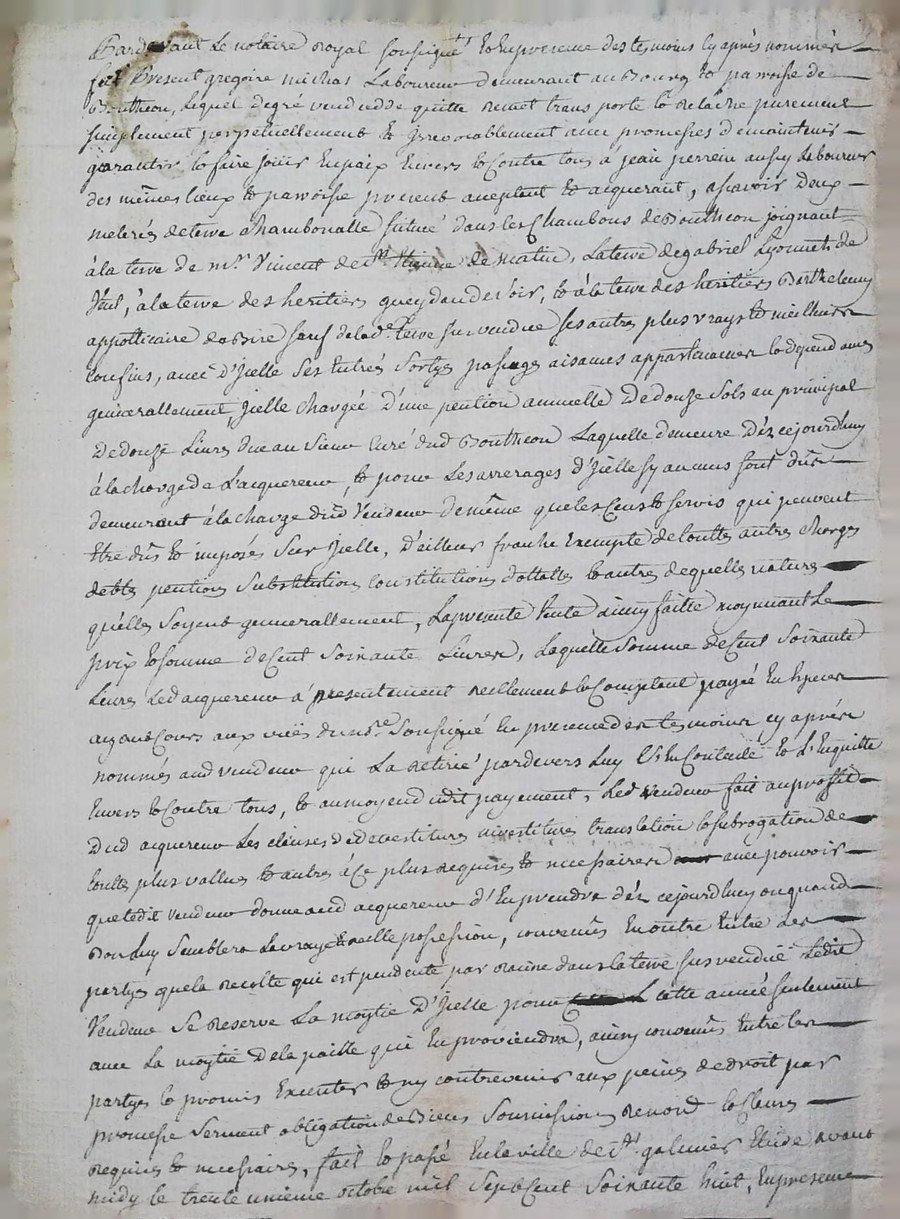 Pardevant Le notaire Royal soussigné Et En presence des tesmoins Cy après nommés
fut Present gregoire michas Laboureur demeurant au Bourg et paroisse de
Boutheon, Lequel degré vend cedde quitte remet transporte et relache purement
simplement perpetuellement et irrevocablement avec promesses de maintenir
garantir et faire jouir En paix Envers et Contre tous à jean perrein aussy Laboureur
des mêmes lieux et paroisse present aceptant et acquerant, ascavoir deux
meterés de terre Chambonalle situéé dans les Chambons de Bouthéon joignant
à la terre de mr. Vincent de St. Etienne de matin, La terre de gabriel Lyonnet de
Vent, à la terre des heritiers de soir, et à la terre des heritiers Barthelemy
appotticaire de Bize sauf de lad. terre sus vendue ses autres plus vrays et meilleurs
Confins, avec d'Jcelle Ses Entrés Sortyes passages aisances appartenances et dépendances
generallement, Jcelle chargéé D'une pention annuelle De douze Sols au principal
De douze Livres due au Sieur Curé dud Bouthéon Laquelle demeure Dèz cejourd'huy
à la charge de L'acquereur, et pour Les arrerages d'Jcelle sy aucuns sont dûs
demeurant à la charge dud Vendeur de même que les Cens et servis qui peuvent
Etre dûs et imposés Sur Jcelle, d'eilleur franche Exempte de touttes autres charges
debtes pentions Substitutions Constitutions dottalles et autres de quelle nature
quelles soyent generallement, La presente vente ainsy faitte moyennant Le
prix et somme de Cent Soixante Livres, Laquelle Somme de Cent Soixante
Livres Led acquereur a presentement reellement et Comptant payéé En Especes
ayant Cours aux vûës du nre. Soussigné En presence des tesmoins cy après
nommés aud vendeur qui La retiréé pardevers Luy S'En Contente et L'En quitte
Envers et Contre tous, et au moyen dudit payement, Led Vendeur fait au proffit
Dud acquereur Les clauses de devestitures investitures translation et subrogation de
touttes plus vallues et autres à Ce plus requises et necessaires avec pouvoir
que ledit vendeur donne aud acquereur d'En prendre dèz cejourd'huy ou quand
Bon Luy Semblera La vraye Reelle possession, convenûs En outre Entre Les
partyes que la recolte qui est pendente par racine dans la terre sus vendue Ledit
Vendeur Se reserve La moytié D'Jcelle pour cette année seulement
avec La moytié De la paille qui En proviendra, ainsy convenûs Entre les
partyes et promis Executer et ny contrevenir aux peines de droit par
promesse Serment obligation de Biens Soumissions Renond et Clauses
requises et necessaires, fait et passé En la ville de St. galmier Etude avant
midy le trente unieme octobre mil Sept Cent Soixante huit, En presence